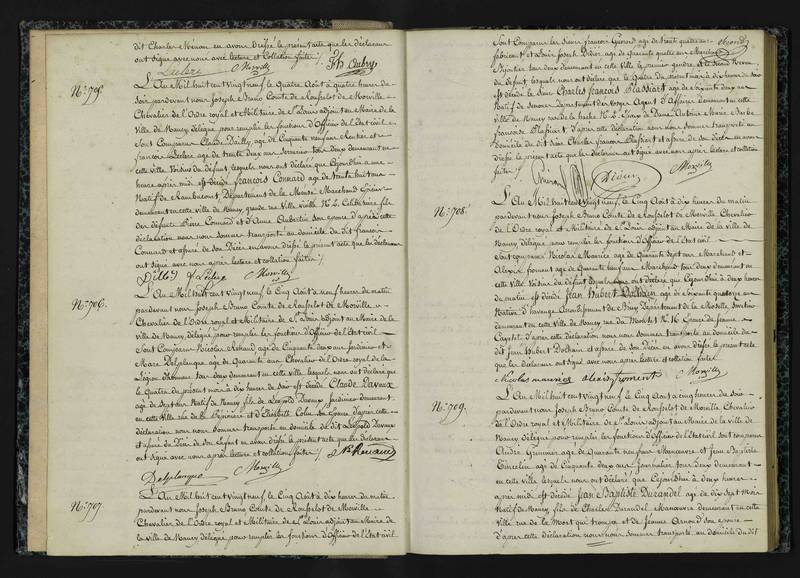 dit Charles Menou en avons Dressé le présent acte que les déclarans
ont signé avec nous après lecture et collation faites /.
Leclerc Morville Fr Aubry
N.° 705.
L'An Mil huit cent vingt neuf le quatre Août à quatre heures du
soir pardevant nous Joseph Bruno Comte de Rousselot de Morville
Chevalier de l'Ordre royal et Militaire de St Louis adjoint au Maire de la
Ville de Nancy délégué pour remplir les fonctions d'Officier de l'Etat civil
Sont Comparus Claude Dailly, agé de Cinquante neuf ans Rentier et
françois Leclerc agé de trente deux ans tous deux demeurant en
cette ville Voisins du défunt, lesquels nous ont déclaré que Cejourd'hui à une
heure après midi est décédé françois Connard agé de trente huit ans
Natif de Rambucourt, Département de la Meuse Marchand Epicier
demeurant en cette ville de Nancy, grande rue Ville vieille N.° 2. Célibataire fils
des défunts Pierre Connard et d'Anne Aubertin son épouse d'après cette
déclaration nous nous sommes transporté au domicile du dit françois
Connard et assuré de son Décès en avons dressé le présent acte que les déclarans
ont signé avec nous après lecture et collation faites /.
Dilly f Leclerc Morville
N.° 706.
L'An Mil huit cent vingt neuf le Cinq Août à neuf heures du matin
pardevant nous Joseph Bruno Comte de Rousselot de Morville
Chevalier de l'Ordre royal et Militaire de St Louis adjoint au Maire de la
ville de Nancy délégué pour remplir les fonctions d'Officier de l'Etat civil
Sont Comparus Nicolas Renaud agé de Cinquante deux ans Jardinier et
Marc Delplanque agé de quarante ans Chevalier de l'Ordre royal de la
Légion d'honneur tous deux demeurant en cette ville lesquels nous ont déclaré que
le quatre du présent mois à dix heures du soir est décédé Claude Davoux
agé de Sept ans Natif de Nancy fils de Léopold Davoux Jardinier demeurant
en cette ville rue de la Pépinière et d'Elisabeth Colin son épouse d'après cette
déclaration nous nous sommes transporté au domicile du dit Léopold Davoux
et assuré du Décès de son Enfant en avons dressé le présent acte que les déclarans
ont signé avec nous après lecture et collation faites /. N Renaud
Delplanque Morville
N.° 707.
L'An Mil huit cent vingt neuf le Cinq Août à dix heures du matin
pardevant nous Joseph Bruno Comte de Rousselot de Morville
Chevalier de l'Ordre royal et Militaire de St Louis adjoint au Maire de
la ville de Nancy délégué pour remplir les fonctions d'Officier de l'Etat civil
Sont Comparus les Sieurs françois agé de trente quatre ans
fabricant et Louis Joseph Didier agé de quarante quatre ans Marchand
Bijoutier tous deux demeurant en cette ville le premier gendre et le second
du défunt, lesquels nous ont déclaré que le quatre Du présent mois à dix heures du soir
est décédé le Sieur Charles françois Plassiart agé de soixante deux ans
Natif de Département des Vosges Agent d'Affaires demeurant en cette
ville de Nancy rue de la hache N.° 2. Epoux de Dame Antoine Marie Barbe
françoise Plassiart d'après cette déclaration nous nous sommes transporté au
Domicile du dit Sieur Charles françois Plassiart et assuré de son décès en avons
dressé le présent acte que les déclarans ont signé avec nous après lecture et collation
faites /. Didier Morville
N.° 708.
L'An Mil huit cent vingt neuf, le Cinq Août à dix heures du matin
pardevant nous Joseph Bruno Comte de Rousselot de Morville Chevalier
de l'Ordre royal et Militaire de St Louis adjoint au Maire de la ville de
Nancy délégué pour remplir les fonctions d'Officier de l'Etat civil
Sont comparus Nicolas Maurice agé de quarante sept ans Marchand et
Alexis froment agé de quarante neuf ans Marchand tous deux demeurant en
cette ville Voisins du défunt lesquels nous ont déclaré que Cejourd'hui à deux heures
du matin est décédé Jean Hubert Dolhain agé de soixante quatorze ans
Natif d' Arrondissement de Briey Département de la Moselle
demeurant en cette Ville de Nancy rue du N.° 16 Epoux de Jeanne
d'après cette déclaration nous nous sommes transporté au domicile du
dit Jean Hubert Dolhain et assuré de son Décès en avons dressé le présent acte
que les déclarans ont signé avec nous après lecture et collation faites
Nicolas maurice alexis froment Morville
N.° 709.
L'An Mil huit cent vingt neuf le Cinq Août à cinq heures du soir
pardevant nous Joseph Bruno Comte de Rousselot de Morville Chevalier
de l'Ordre royal et Militaire de St Louis adjoint au Maire de la ville de
Nancy délégué pour remplir les fonctions d'Officier de l'Etat civil sont comparus
André Grimmer agé de quarante neuf ans Manoeuvre et Jean Baptiste
agé de Cinquante deux ans Journalier tous deux demeurant
en cette ville lesquels nous ont déclaré que Cejourd'hui à deux heures
après midi est décédé Jean Baptiste Durandel agé de dix Sept Mois
Natif de Nancy fils de Charles Durandel Manoeuvre demeurant en cette
ville rue de la et de Jeanne Arnould son épouse
d'après cette déclaration nous nous sommes transporté au domicile du dit